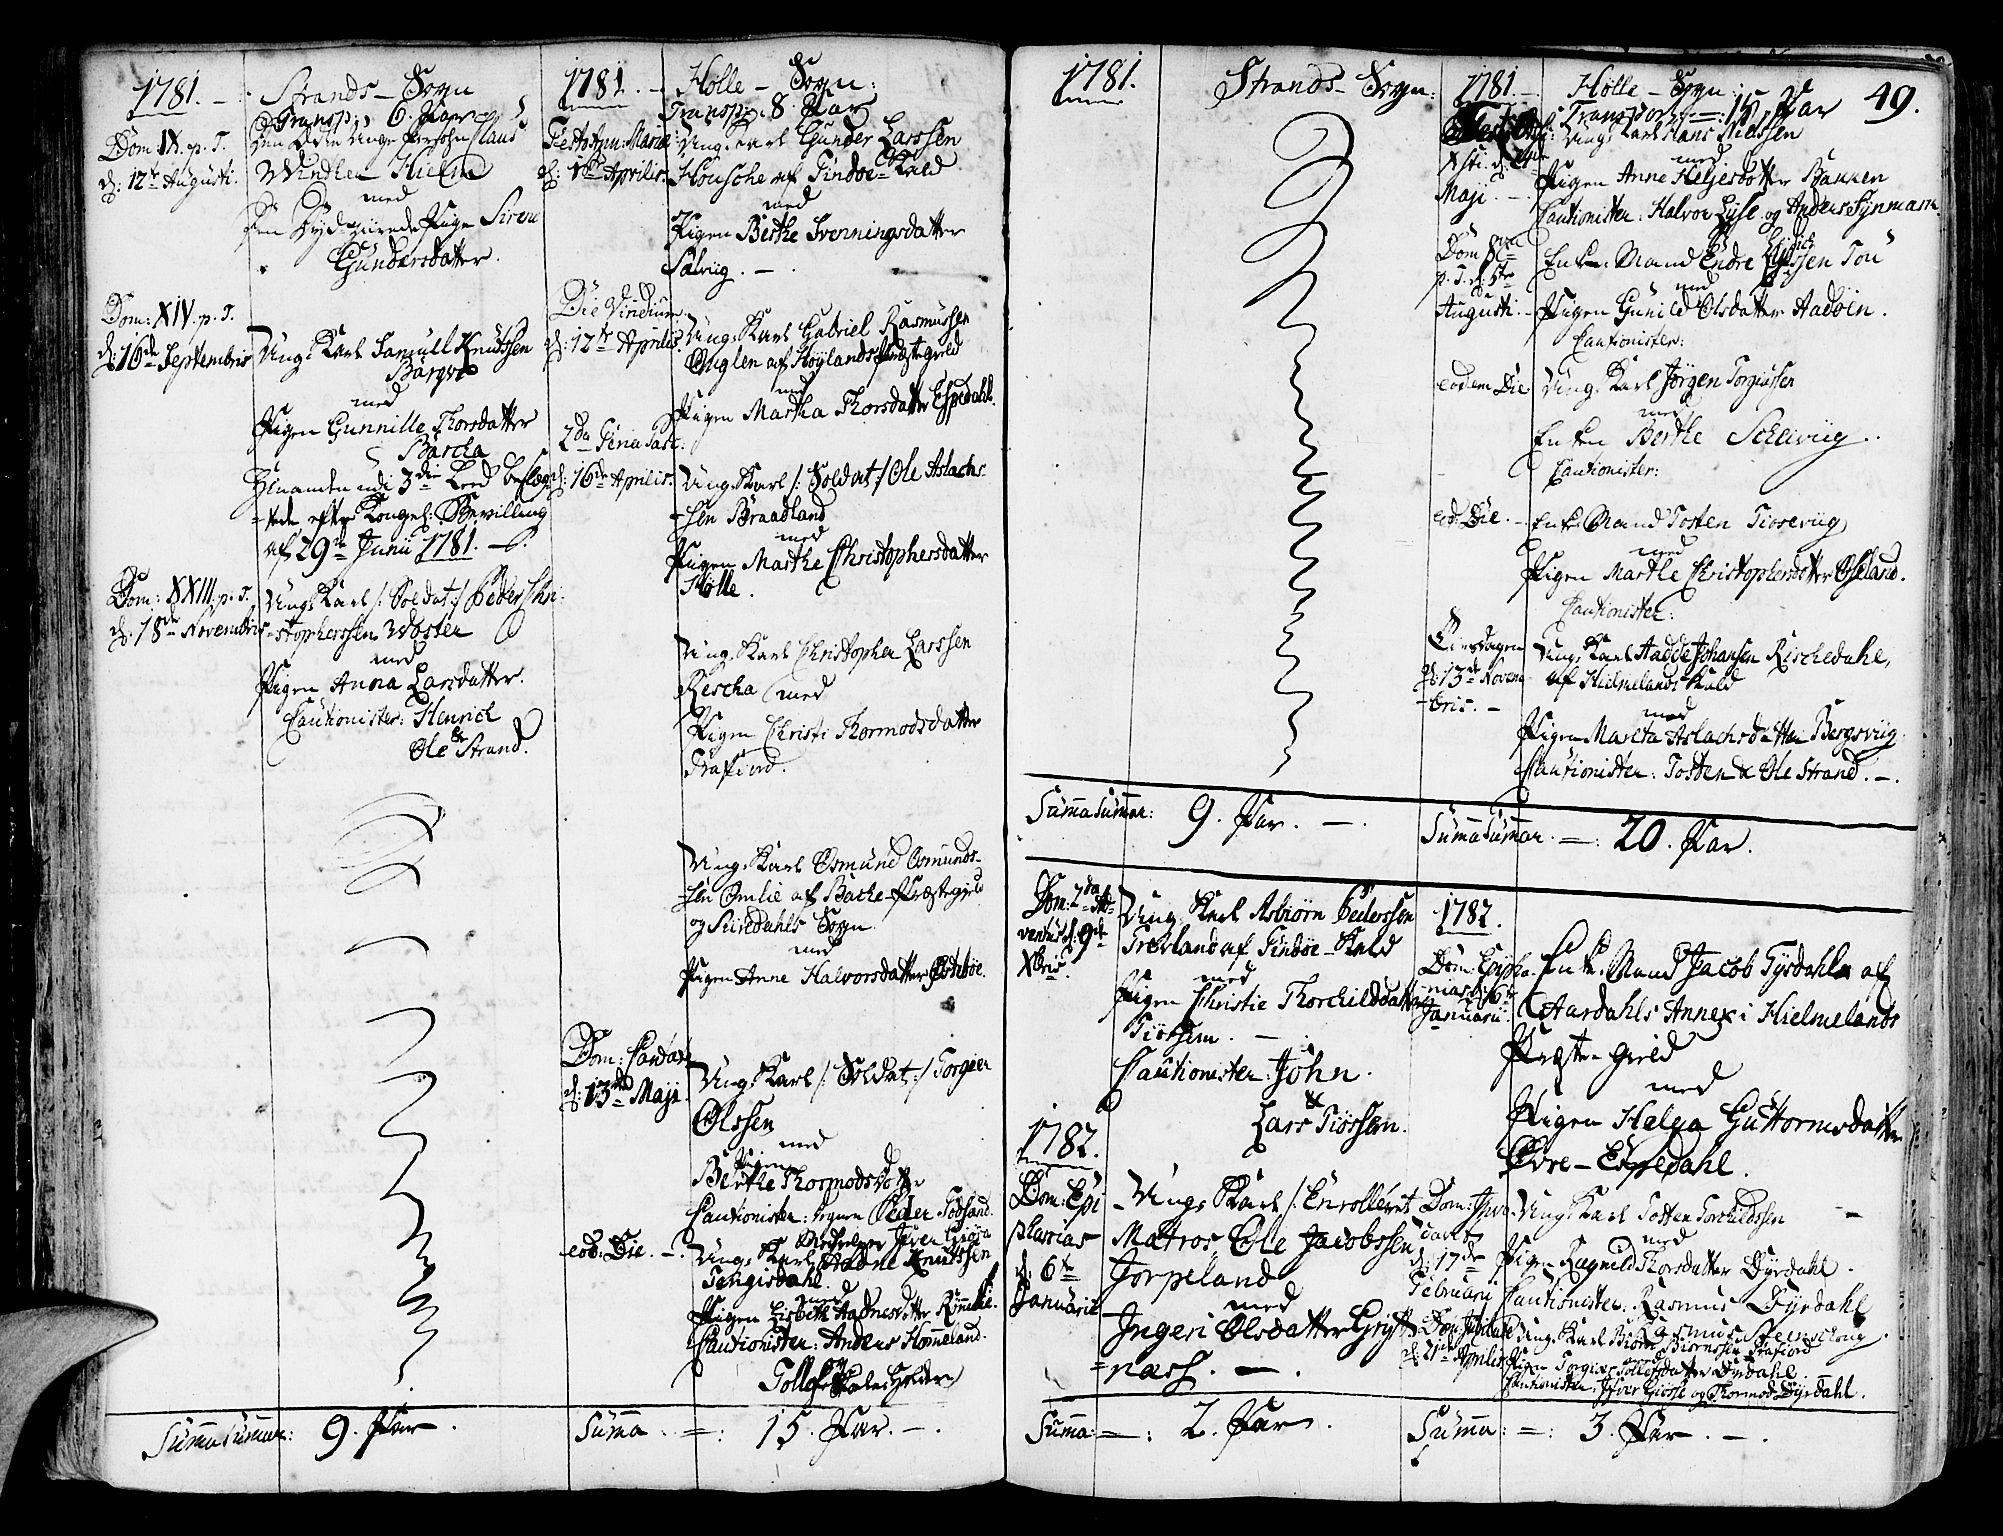 1781. -
Strands - Sogn
Transp: 6. Par
Dom: IX. p. T.
d: 12te Augusti.
Den Unge Person Claus
Windler Hielm
med
Den Dydziirede Pige Sirene
Gundersdatter.
Dom: XIV. p. T.
d: 16de Septembris
Ung. Karl Samuell Knudssen
Barqve
med
Pigen Gunnille Thorsdatter
Barcha
Beslæg-
tede efter Kongel: Bevilling
af 29de Junii 1781. -
Dom: XXIII. p. T.
d. 18de Novembris
Ung. Karl /: Soldat :/ Peder Chri-
stopherssen Woster
med
Pigen Anna Larsdatter.
Cautionister: Henrich
&
Ole Strand.
Summa Summar: 9. Par.
1781. -
Holle - Sogn:
Transp: 8. Par
Festo Ann: Mariæ
d: 1ste Aprilis.
Ung. Karl Gunder Larssen
Housche af Findøe-Kald
med
Pigen Berthe Svenningsdatter
Sælviig. -
Die Viridium
d: 12te Aprilis.
Ung. Karl Gabriel Rasmussen
Onglen af Høylands Præstegield
med
Pigen Martha Thorsdatter Espedahl.
2da Feria Pasc:
d: 16de Aprilis.
Ung. Karl /: Soldat :/ Ole Aslachs-
-sen Braadland
med
Pigen Marthe Christophersdatter
Hølle.
Ung. Karl Christopher Larssen
Rescha med
Pigen Christi Thormodsdatter
Frafiord.
Ung. Karl Osmund Osmunds-
-sen Omlie af Backe-Præstegield
og Siiredahls Sogn
med
Pigen Anne Halvorsdatter
Dom: Cantate
d. 13de Maji.
Ung. Karl /: Soldat :/ Torgier
Olssen
med
Pigen
Berthe Thormodsdatter
Cautionister: Peder Fossand
Iver Giøse
eod: Die. -
Ung. Karl Ådne Knudssen
Tengisdahl
med
Pigen Lisbeth Aadnesdatter
Cautionister: Anders Hommeland.
og
Tollef
Summa. =: 15. Par. -.
1781.
Strands - Sogn:
Summa Summar: 9. Par. -.
Dom: 2da Ad-
ventus d: 9de
Xbris.
Ung. Karl Asbiørn Pederssen
Treeland af Findøe-Kald
med
Pigen Christie Thorchilddatter
Tiøssem. -
Cautionister: John.
&
Lars Tiøssem.
1782.
Dom: Epi
phanias
d: 6te
Januarii
Ung. Karl /: Enrolleret
Matros, Ole Jacobssen
Jorpeland
med
Ingeri Olsdatter Gryt
=nass. -.
Summa: =: 2. Par.
1781. -
Holle - Sogn:
Transport =: 15. Par
49.
Xsti. d: 24de
Maji. -
Ung. Karl Hans Nielssen
med
Pigen Anne Helgesdatter Backen
Cautionister: Halvor Lyse og Anders Fynmark
Dom 8va
p. T. d. 5te
Augusti. -
Enke Mand Endre Tou
med
Pigen Gunild Olsdatter Aadøen.
Cautionister:
eodem Die
Ung. Karl Jørgen Torgiussen
med
Enken Berthe Scheiviig.
Cautionister:
eod: Die. -
Enke Mand Tosten Tioseviig
med
Pigen Marthe Christophersdatter Ofteland.
Cautionister:
Tiirsdagen
d: 13de Novem
-bris. -
Ung. Karl Aadde Johansen Rischedahl,
af Hielmelands Kald
med
Pigen Marita Aslachsdatter Bergsviig.
Cautionister: Tosten & Ole Strand. -.
Summa Summar. =: 20. Par.
1782.
Dom: Epipha-
nias d: 6te
Januarii.
Enke Mand Jacob Tysdahl af
Aardahls Annex i Hielmelands
Præste-Gield
med
Pigen Helga Guttormsdatter
Øvre-Espedahl.
Dom: Invo-
cavit
d. 17de
Februarii
Ung. Karl Tosten Torchildssen
med
Pigen Ragnild Thorsdatter Dyrdahl.
Cautionister: Rasmus Dyrdahl
Rasmus
Dom: Jubilate
d: 21de Aprilis
Ung. Karl Biørn Biørnssen Frafiord
Pigen Torgier Tollofsdatter Dyrdahl
Cautionister: Ifver Giøsse og Thormod Dyrdahl.
Summa: =: 3. Par. -.